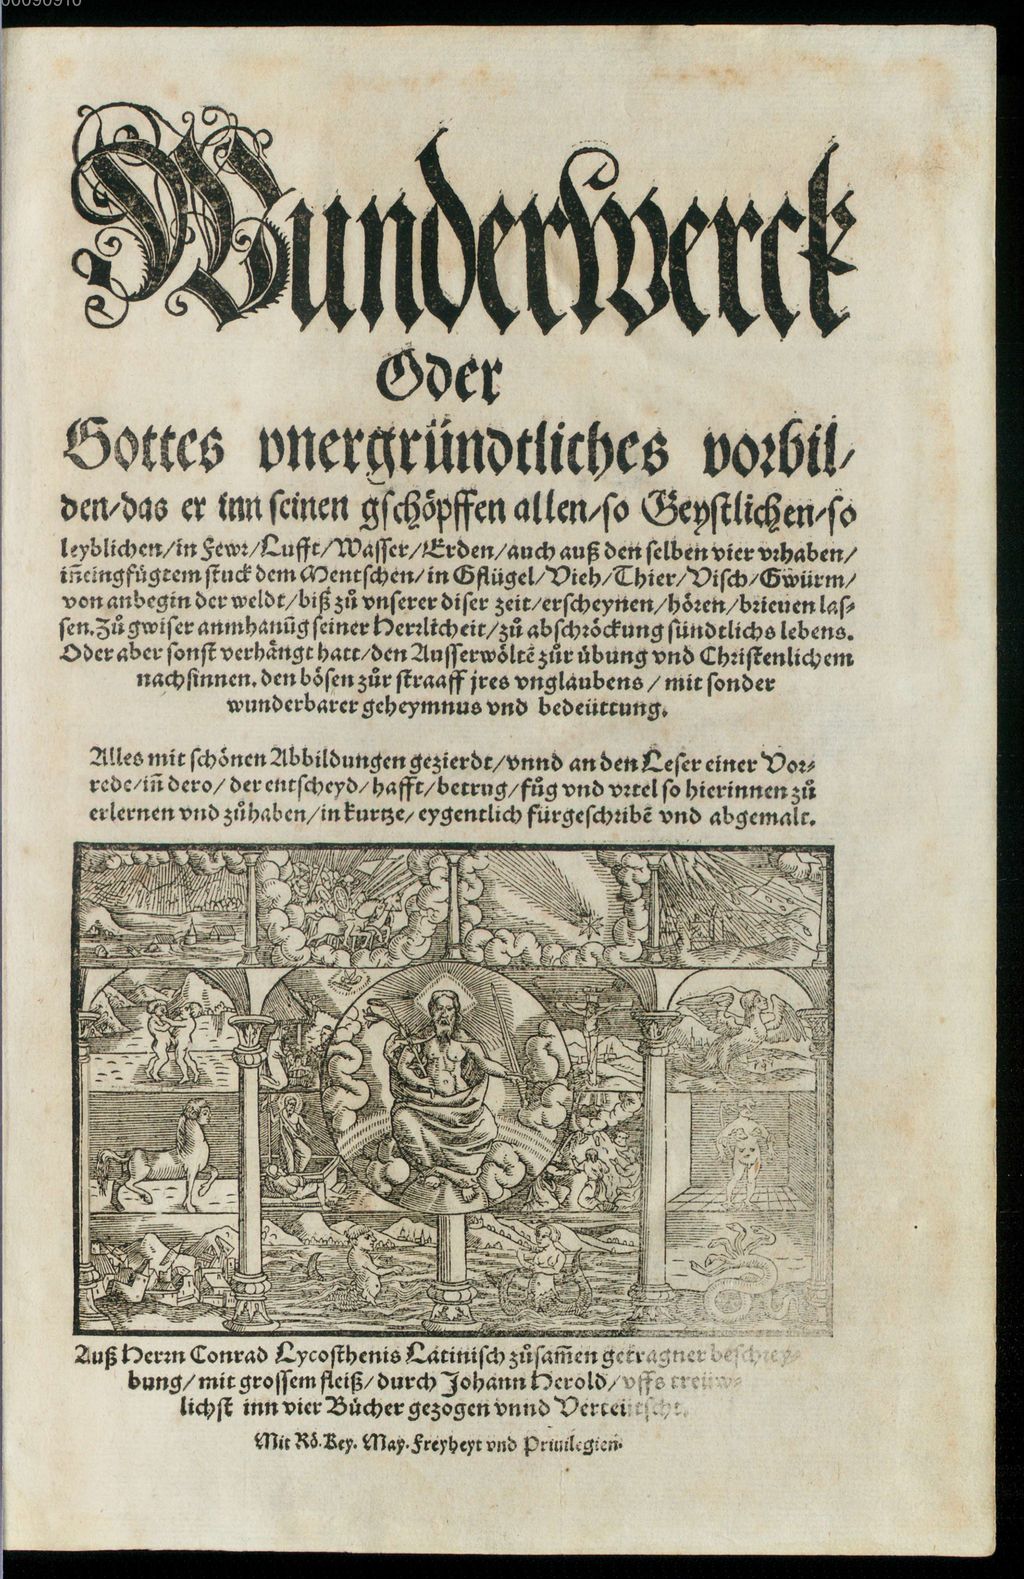 00090910
Wunderwerck
Oder
Gottes vnergründtliches vorbil/
den/das er inn seinen gschöpffen allen/so Geystlichen/so
leyblichen/in Fewr/Lufft/Wasser/Erden/auch auß den selben vier vrhaben/
iñeingfügtem stuck dem Mentschen/in Gflügel/Vieh/Thier/Visch/Gwürm/
von anbegin der weldt/biß zů vnserer diser zeit/erscheynen/hören/brieuen las⸗
sen. Zů gwiser anmhanūg seiner Herrlicheit/zů abschröckung sündtlichs lebens.
Oder aber sonst verhängt hatt/den Ausserwöltē zůr übung vnd Christenlichem
nachsinnen. den bösen zůr straaff jres vnglaubens / mit sonder
wunderbarer geheymnus vnd bedeüttung.
Alles mit schönen Abbildungen gezierdt/vnnd an den Leser einer Vor⸗
rede/iñ dero/ der entscheyd/hafft/betrug/fůg vnd vrtel so hierinnen zů
erlernen vnd zůhaben/in kurtze/eygentlich fürgeschribē vnd abgemalt.
Auß Herrn Conrad Lycosthenis Latinisch zůsam̃en getragner beschrey⸗
bung/mit grossem fleiß/durch Johann Herold/vffs treüw⸗
lichst inn vier Bücher gezogen vnnd Verteütscht.
Mit Rö. Key. May. Freyheyt vnd Priuilegien.